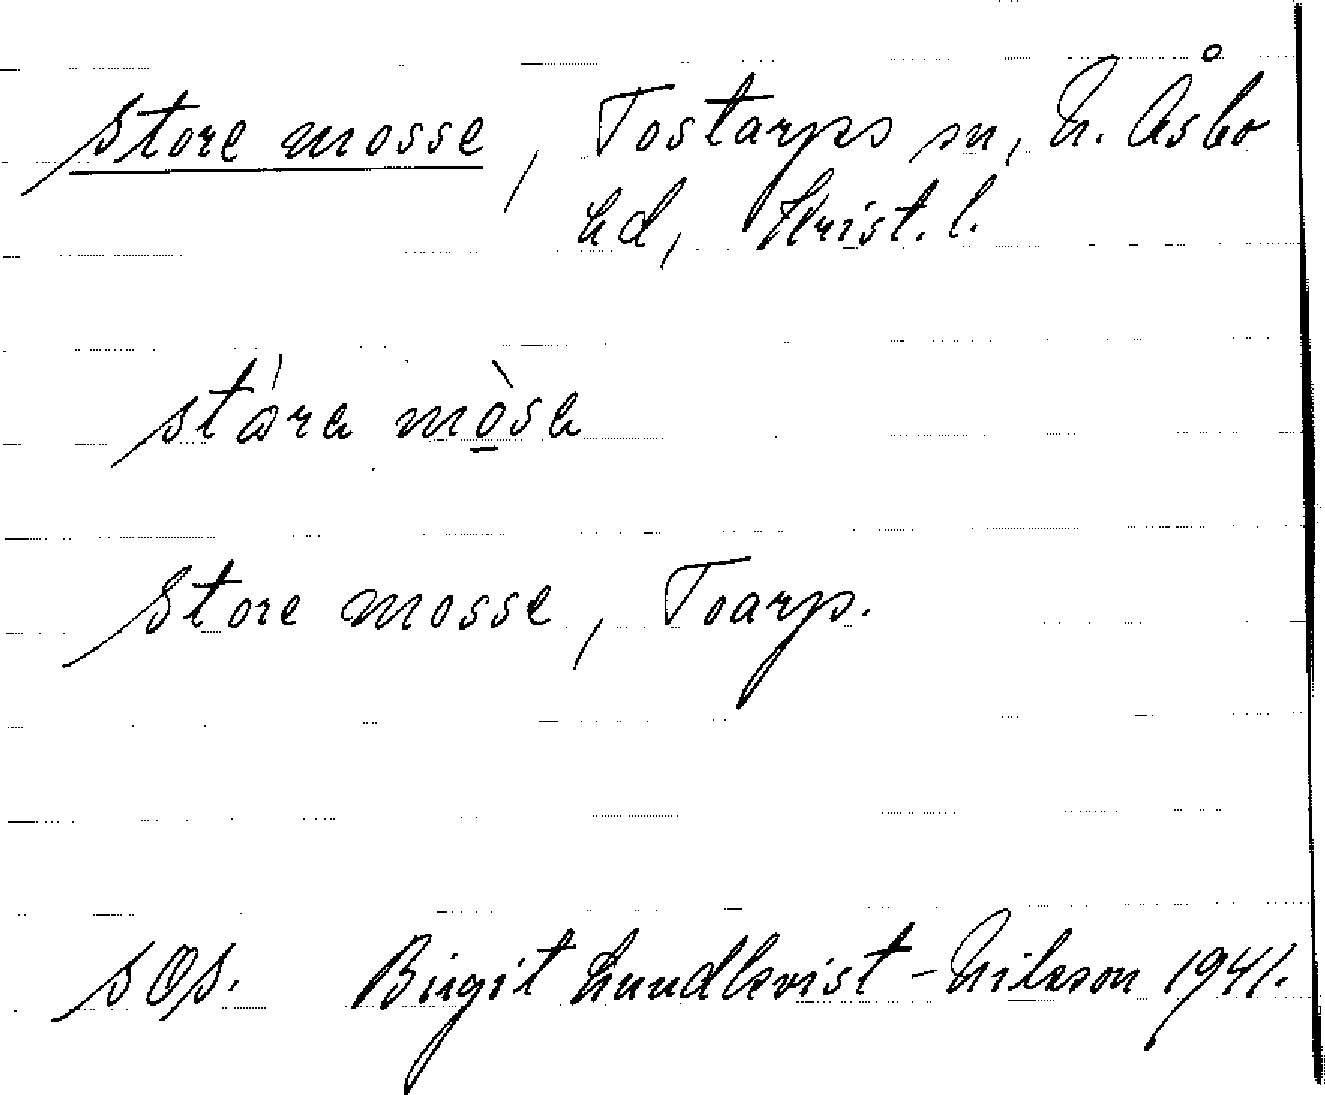 Store mosse, Tostarps sn, N. Åsbo
hd, Krist. l.
Store mosse, Toarp.
Birgit Lundkvist-Nilsson 1941.